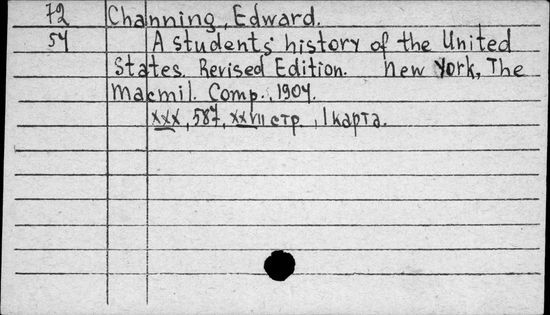 72 Channing, Edward.
54 A students' history of the United
States. Revised Edition. New York, The
Macmil. Comp., 1904.
xxx, 587, xxvii стр., 1 карта.